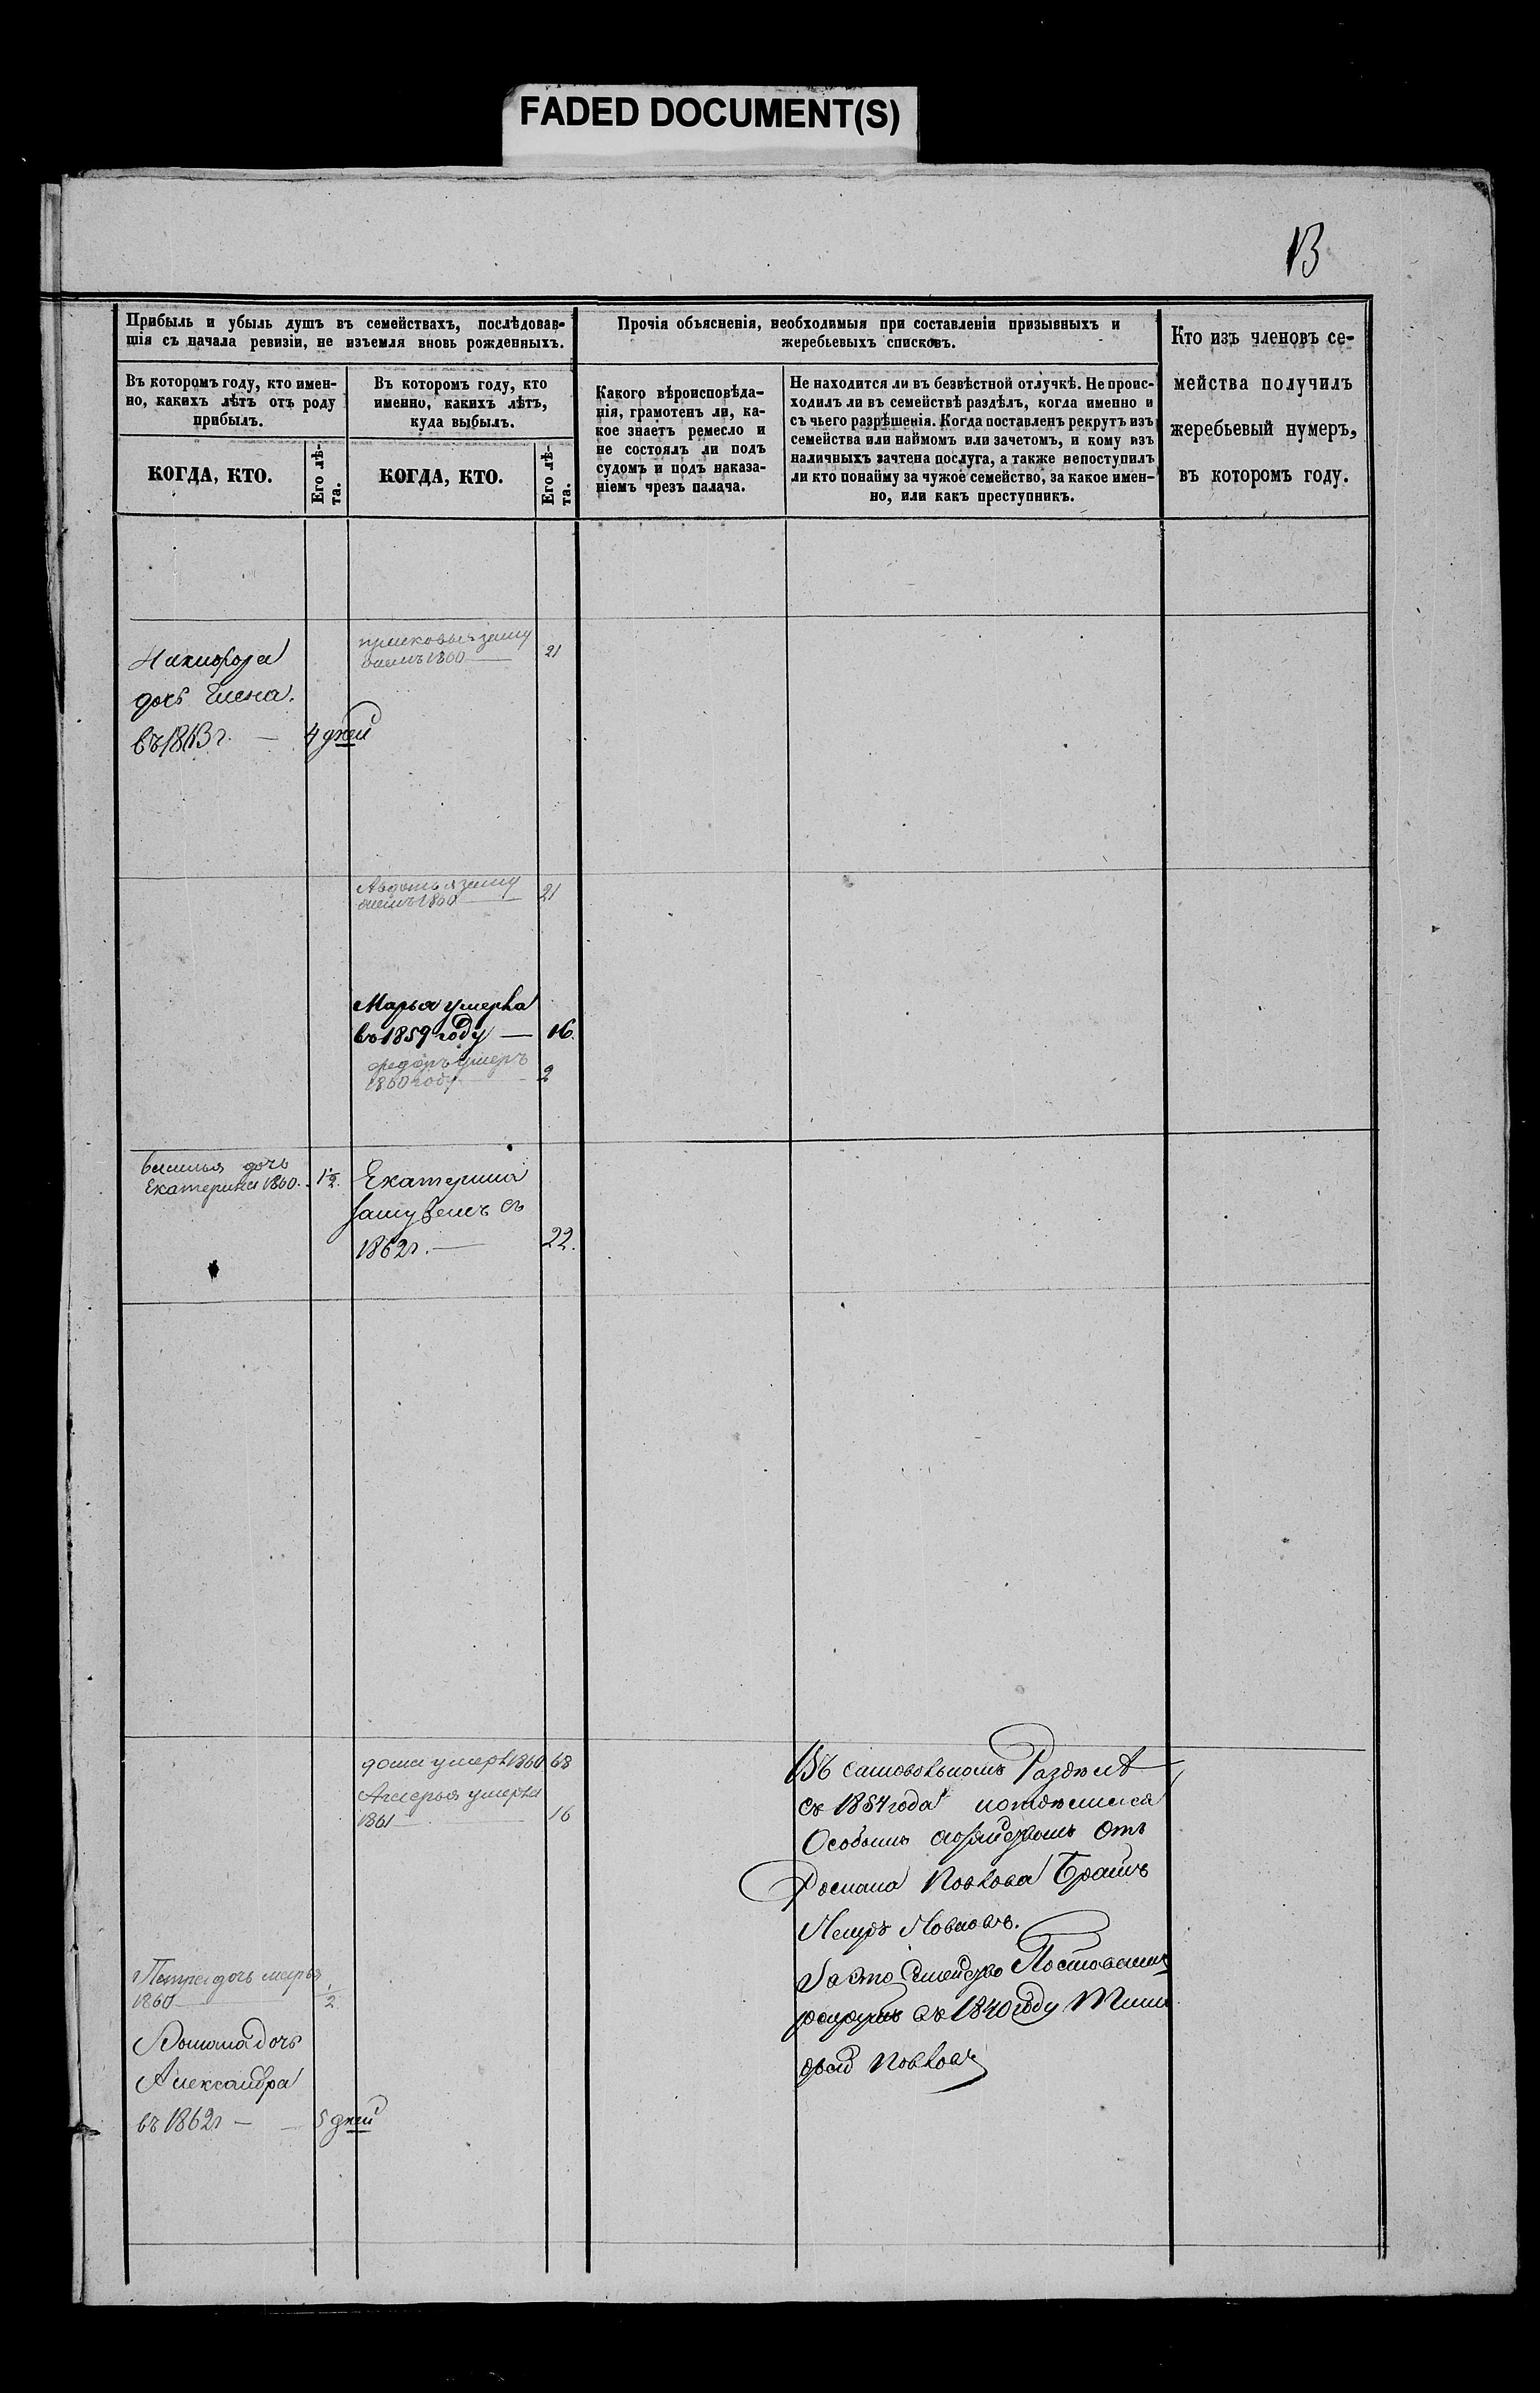 FADED DOCUMENT(S)
13
Прибыль и убыль душъ въ семействахъ, послѣдовав-
шія съ начала ревизіи, не изъемля вновь рожденныхъ.
Прочія объясненія, необходимыя при составленіи призывныхъ и
жеребьевыхъ списковъ.
Кто изъ членовъ се-
мейства получилъ
жеребьевый нумеръ,
въ которомъ году.
Въ которомъ году, кто имен-
но, какихъ лѣтъ отъ роду
прибылъ.
Въ которомъ году, кто
именно, какихъ лѣтъ,
куда выбылъ.
Какого вѣроисповѣда-
нія, грамотенъ ли, ка-
кое знаетъ ремесло и
не состоялъ ли подъ
судомъ и подъ наказа-
ніемъ чрезъ палача.
Не находится ли въ безвѣстной отлучкѣ. Не проис-
ходилъ ли въ семействѣ раздѣлъ, когда именно и
съ чьего разрѣшенія. Когда поставленъ рекрутъ изъ
семейства или наймомъ или зачетомъ, и кому изъ
наличныхъ зачтена послуга, а также непоступилъ
ли кто понайму за чужое семейство, за какое имен-
но, или какъ преступникъ.
КОГДА, КТО.
Его лѣ-
та.
КОГДА, КТО.
Его лѣ-
та.
Никифора
дочь Елена.
въ 1863 г. — 4 дней
1860 — 21
Авдотья заму
жемъ 1860 — 21
Марья умерла
въ 1859 году — 16.
федоръ умеръ
1860 году — 2
василья дочь
Екатерина 1860. 1/2.
Екатерина
замужемъ съ
1862 г. — 22.
умерл 1860 68
умерла
1861 — 16
Въ самовольномъ Раздѣлѣ
съ 1854 года
Особымъ хозяйствомъ отъ
Романа Братъ
Петръ
За это Семейство Поставленъ
рекрутъ въ 1840 году
Петра дочь марья
1860 — 1/2.
Романа дочь
Александра
въ 1862 г — 5 дней